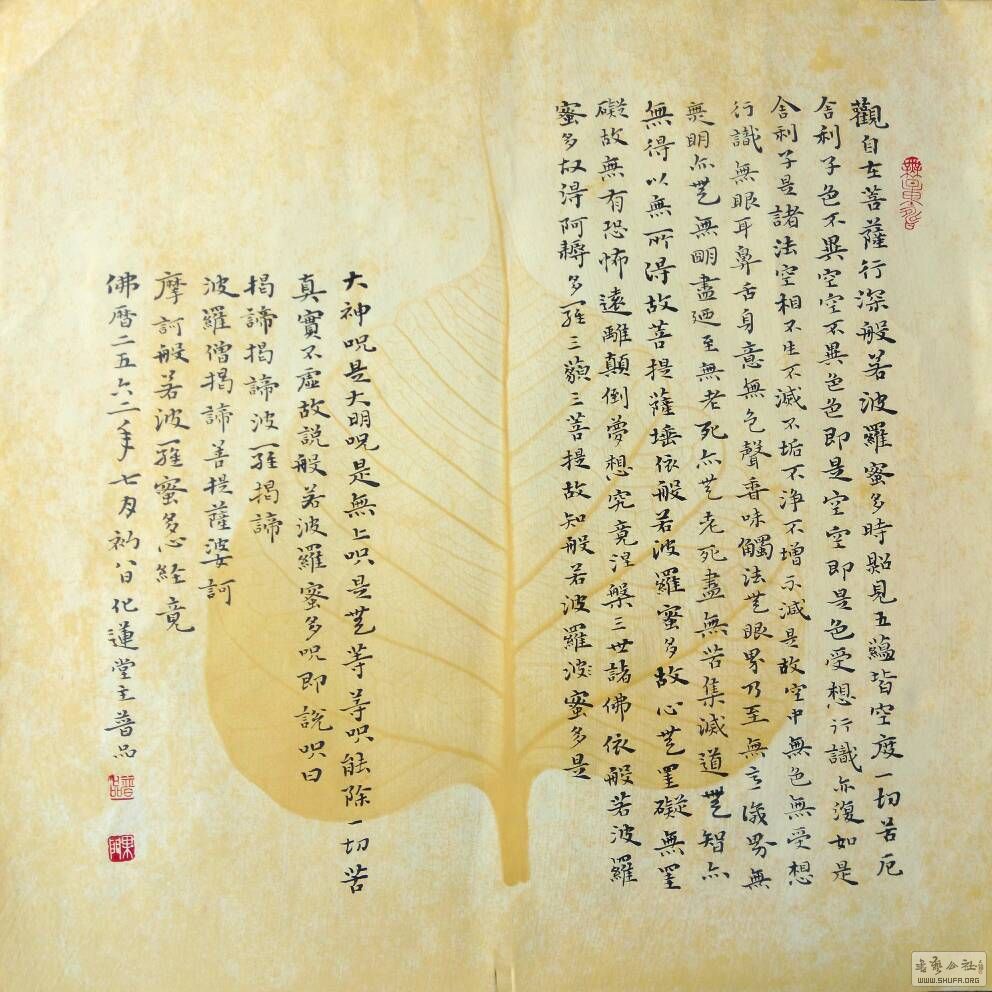 觀自在菩薩行深般若波羅蜜多時照見五蘊皆空度一切苦厄
舍利子色不異空空不異色色即是空空即是色受想行識亦復如是
舍利子是諸法空相不生不滅不垢不淨不增不減是故空中無色無受想
行識無眼耳鼻舌身意無色聲香味觸法無眼界乃至無意識界無
無明亦無無明盡廼至無老死亦無老死盡無苦集滅道無智亦
無得以無所得故菩提薩埵依般若波羅蜜多故心無罣礙無罣
礙故無有恐怖遠離顛倒夢想究竟涅槃三世諸佛依般若波羅
蜜多故得阿耨多羅三藐三菩提故知般若波羅蜜多是
大神呪是大明呪是無上呪是無等等呪能除一切苦
真實不虛故說般若波羅蜜多呪即說呪曰
揭諦揭諦波羅揭諦
波羅僧揭諦菩提薩婆訶
摩訶般若波羅蜜多心経竟
佛曆二五六二年七月初八日化蓮堂主普品
普品
書藝公社
WWW.SHUFA.ORG